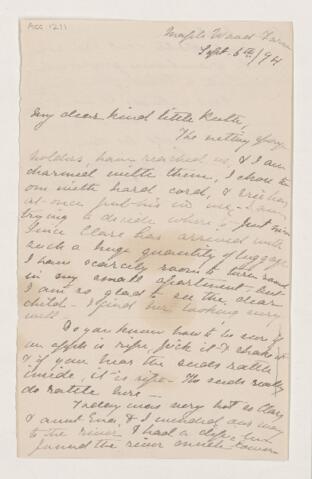 Acc. 1211
Maple Wood Farm
Sept. 5th/94
My dear kind little Ruth,
The netting
holders, have reached us, & I am
charmed with them, I chose the
one with hard cord, &
at once put his in use - I am
trying to decide where. Just now
Since Clare has arrived with
such a huge quantity of luggage
I have scarcely room to turn around
in my small apartment - but
I am so glad to see the dear
child - I find her looking very
well.
Do you know how to be sure if
an apple is ripe, pick it & shake it
& if you hear the seeds rattle
inside, it is ripe - The seeds really
do rattle here -
Today was very hot so Clare
& aunt & I wended our way
to the river. I had a dip, but
found the river much lower